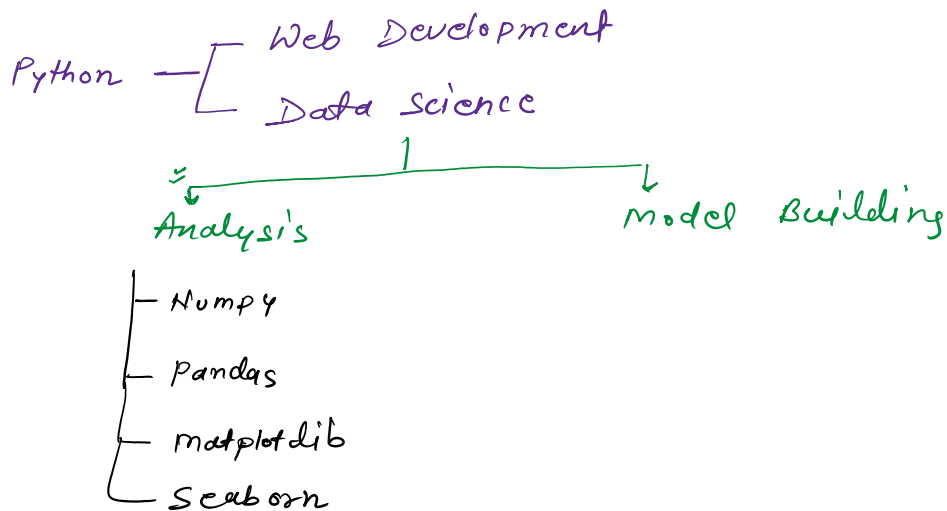 Web Development
Python
Data Science
Analysis
Model Building
Numpy
Pandas
matplotlib
Seaborn